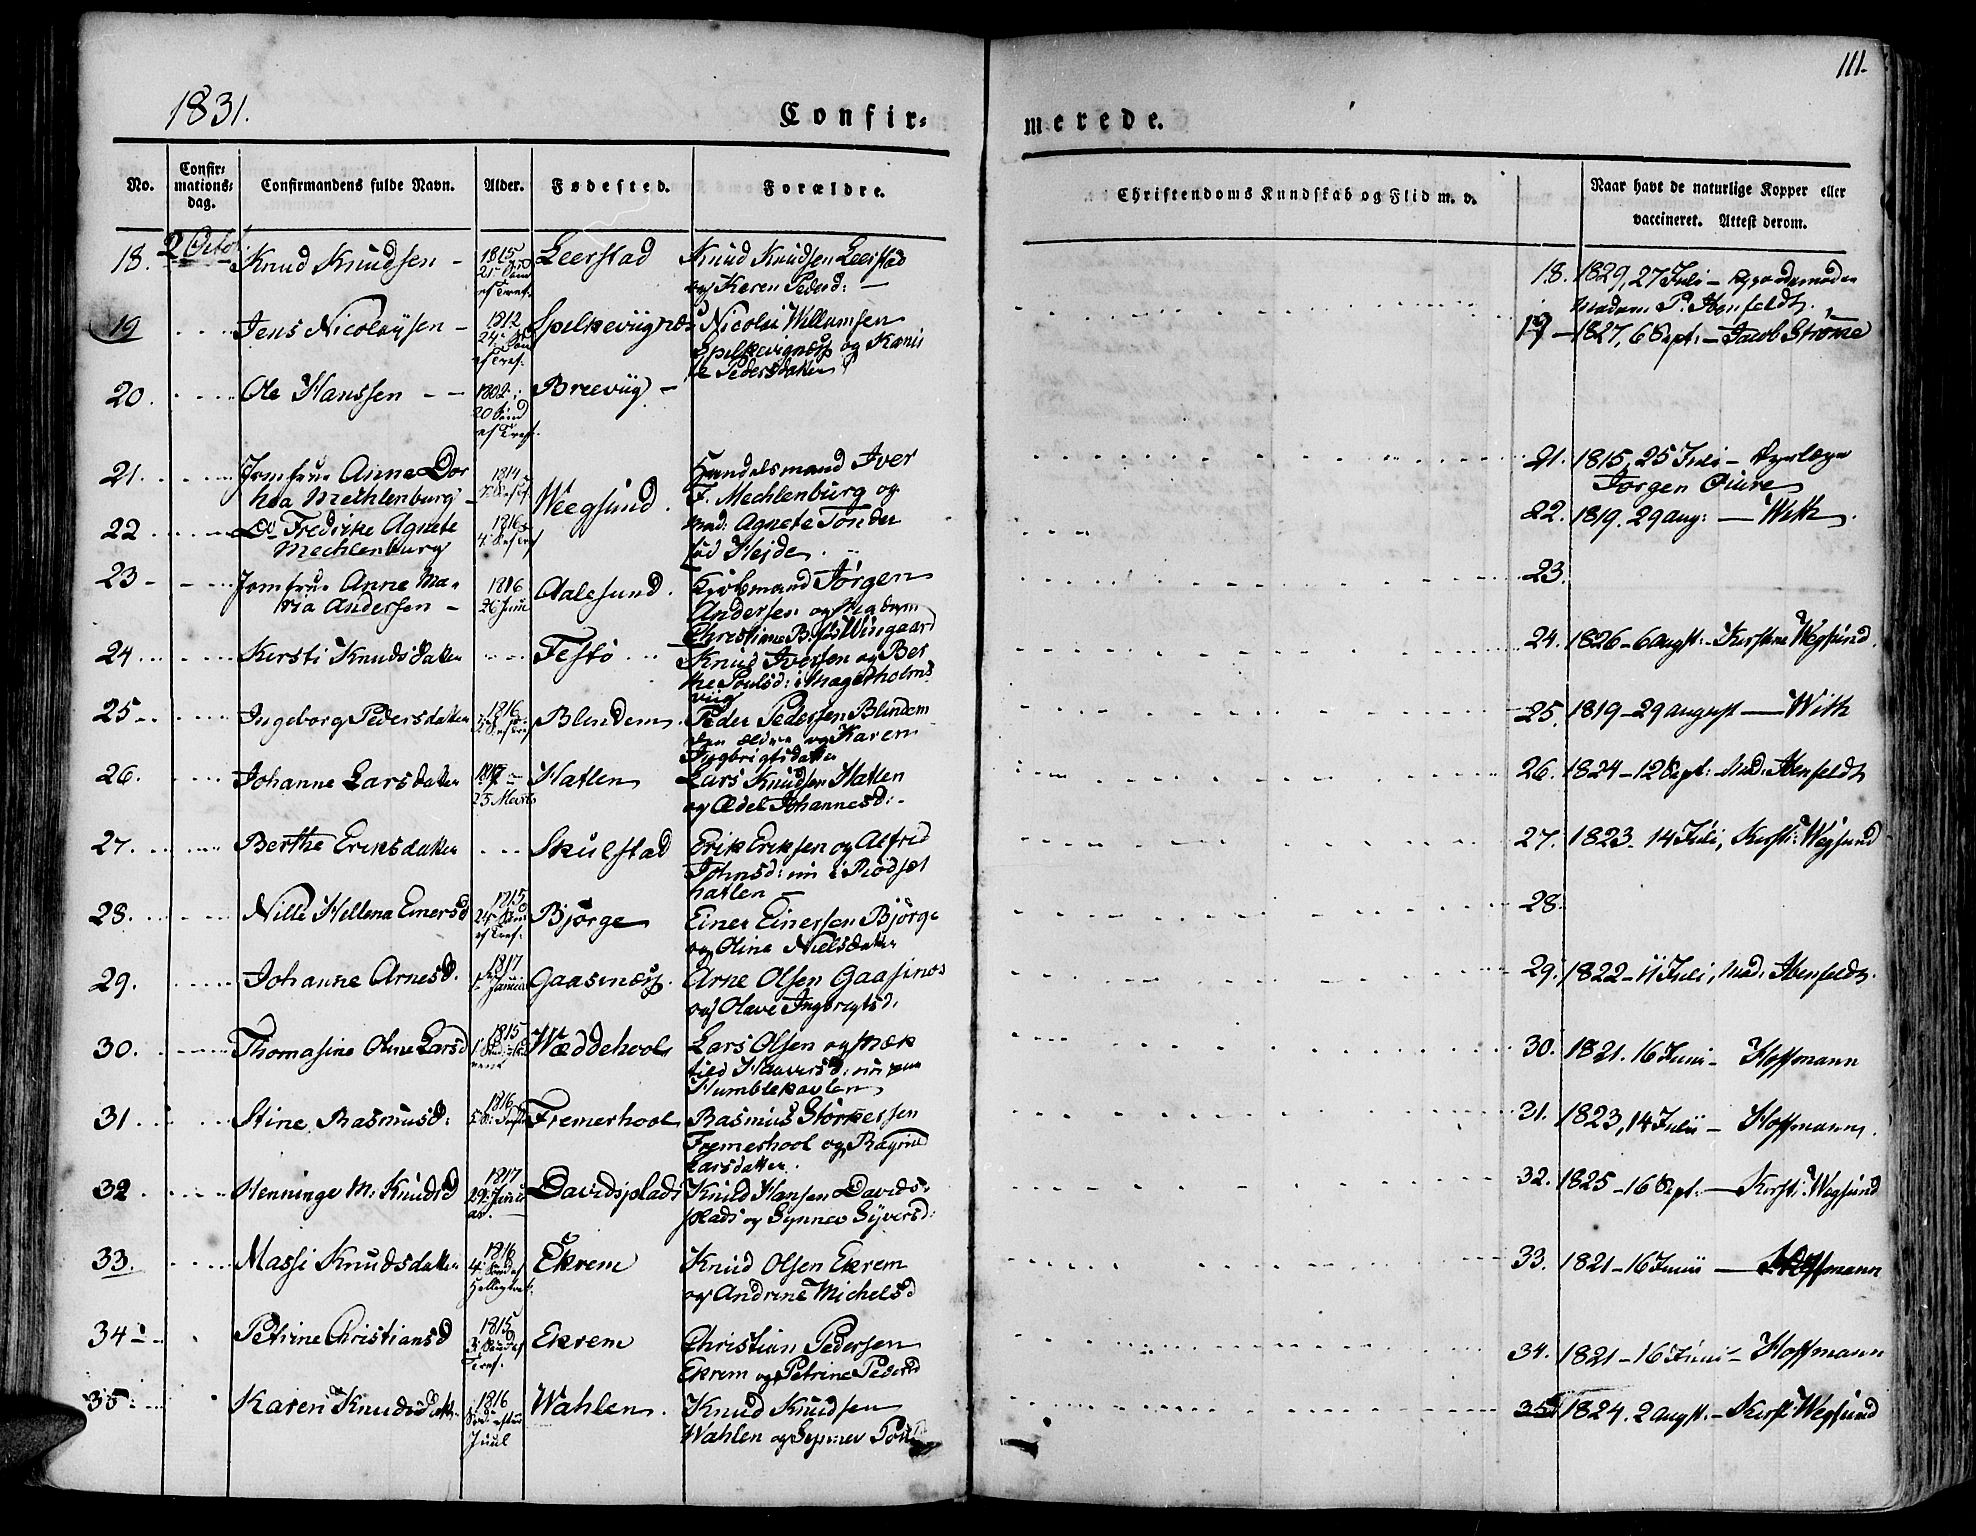 111.
1831.
Confir=
merede.
No.
Confir-
mations-
dag.
Confirmandens fulde Navn.
Alder.
Fødested.
Forældre.
Christendoms Kundskab og Flid m. v.
Naar havt de naturlige Kopper eller
vaccineret. Attest derom.
18. 2 Octob Knud Knudsen - 1815 Leerstad Knud Knudsen Leerstad
og Karen Pedersd: -
18. 1829, 27 Juli -
Madam P. Ibenfeldt.
19 Jens Nicolaysen - 1812 Nicolai Willumsen
og
Pedersdatter
19 - 1827, 6 Sept: - Jacob Strømme
20. Ole Hanssen - - 1802 Breeviig -
20 Sønd
ef Tref.
21. Jomfrue Anne Dor
thea Mechlenburg 1814 Weegsund. Handelsmand Iver
F. Mechlenburg og
21. 1815, 25 Juli -
Jørgen
22 Do Fredrike Agnete
Mechlenburg 1816 Mad: Agnete Tønder
fød Hejde.
22. 1819. 29 Aug: - With.
23 - Jomfrue Anne Ma-
ria Andersen - 1816
26 Juni Aalesund. Kjøbmand Jørgen
Andersen og Madam
Christiane B. fød Wingaard
23.
24 Kersti Knudsdatter Festø Knud Iversen og Ber
the Poulsd: i Magerholms
viig
24. 1826 - 6 Augst: - Kerstine Wegsund.
25 Ingeborg Pedersdatter 1816 Blindem. Peder Pedersen Blindem
den ældre og Karen
Ingbrigtsdatter
25. 1819 - 29 August - With
26. Johanne Larsdatter 1817 -
25 Marts Hatlen Lars Knudsen Hatlen
og Ædel Johannesd: -
26. 1824 - 12 Sept: Mad: Ibenfeldt
27. Berthe Eriksdatter Skulstad Erik Eriksen og Alfrid
Johnsd: nu i Rødset
hatlen -
27. 1823. 14 Juli, Kersti: Wegsund
28. Nille Hellena Einersd 1815 Bjørge Einer Einersen Bjørge
og Oline Nielsdatter
28.
29. Johanne Arnesd. 1817 Gaasnæss. Arne Olsen Gaasnæs
og Olave Ingbregtsd:
29. 1822 - 11 Juli, Mad: Ibenfeldt.
30. Thomasine Oline Larsd 1815 Wæddehool Lars Olsen og Mæk
tild Haaversd: nu paa
Humblekavlen
30. 1821. 16 Juni - Hoffmann
31 Stine Rasmusd: 1816 Fremerhool Rasmus Størkersen
Fremerhool og Ragnild
Larsdatter.
31. 1823, 14 Julii - Hoffmann.
32 Henninge M: Knudsd 1817 Davidsplads Knud Hansen Davids-
plads og Synnev Syversd:
32. 1825 - 16 Sept: - Kersti: Wegsund
33. Massi Knudsdatter 1816 Ekrem Knud Olsen Ekrem
og Andrine Michelsd
33. 1821 - 16 Junii - Hoffmann
34 Petrine Christiansd 1815 Ekrem Christian Pedersen
Ekrem og Petrine Pedersd
34. 1821 - 16 Juni - Hoffmann
35 Karen Knudsdatter 1816
Juul Wahlen. Knud Knudsen
Wahlen og Synnev
35 1824. 2 Augst. - Kersti Wegsund